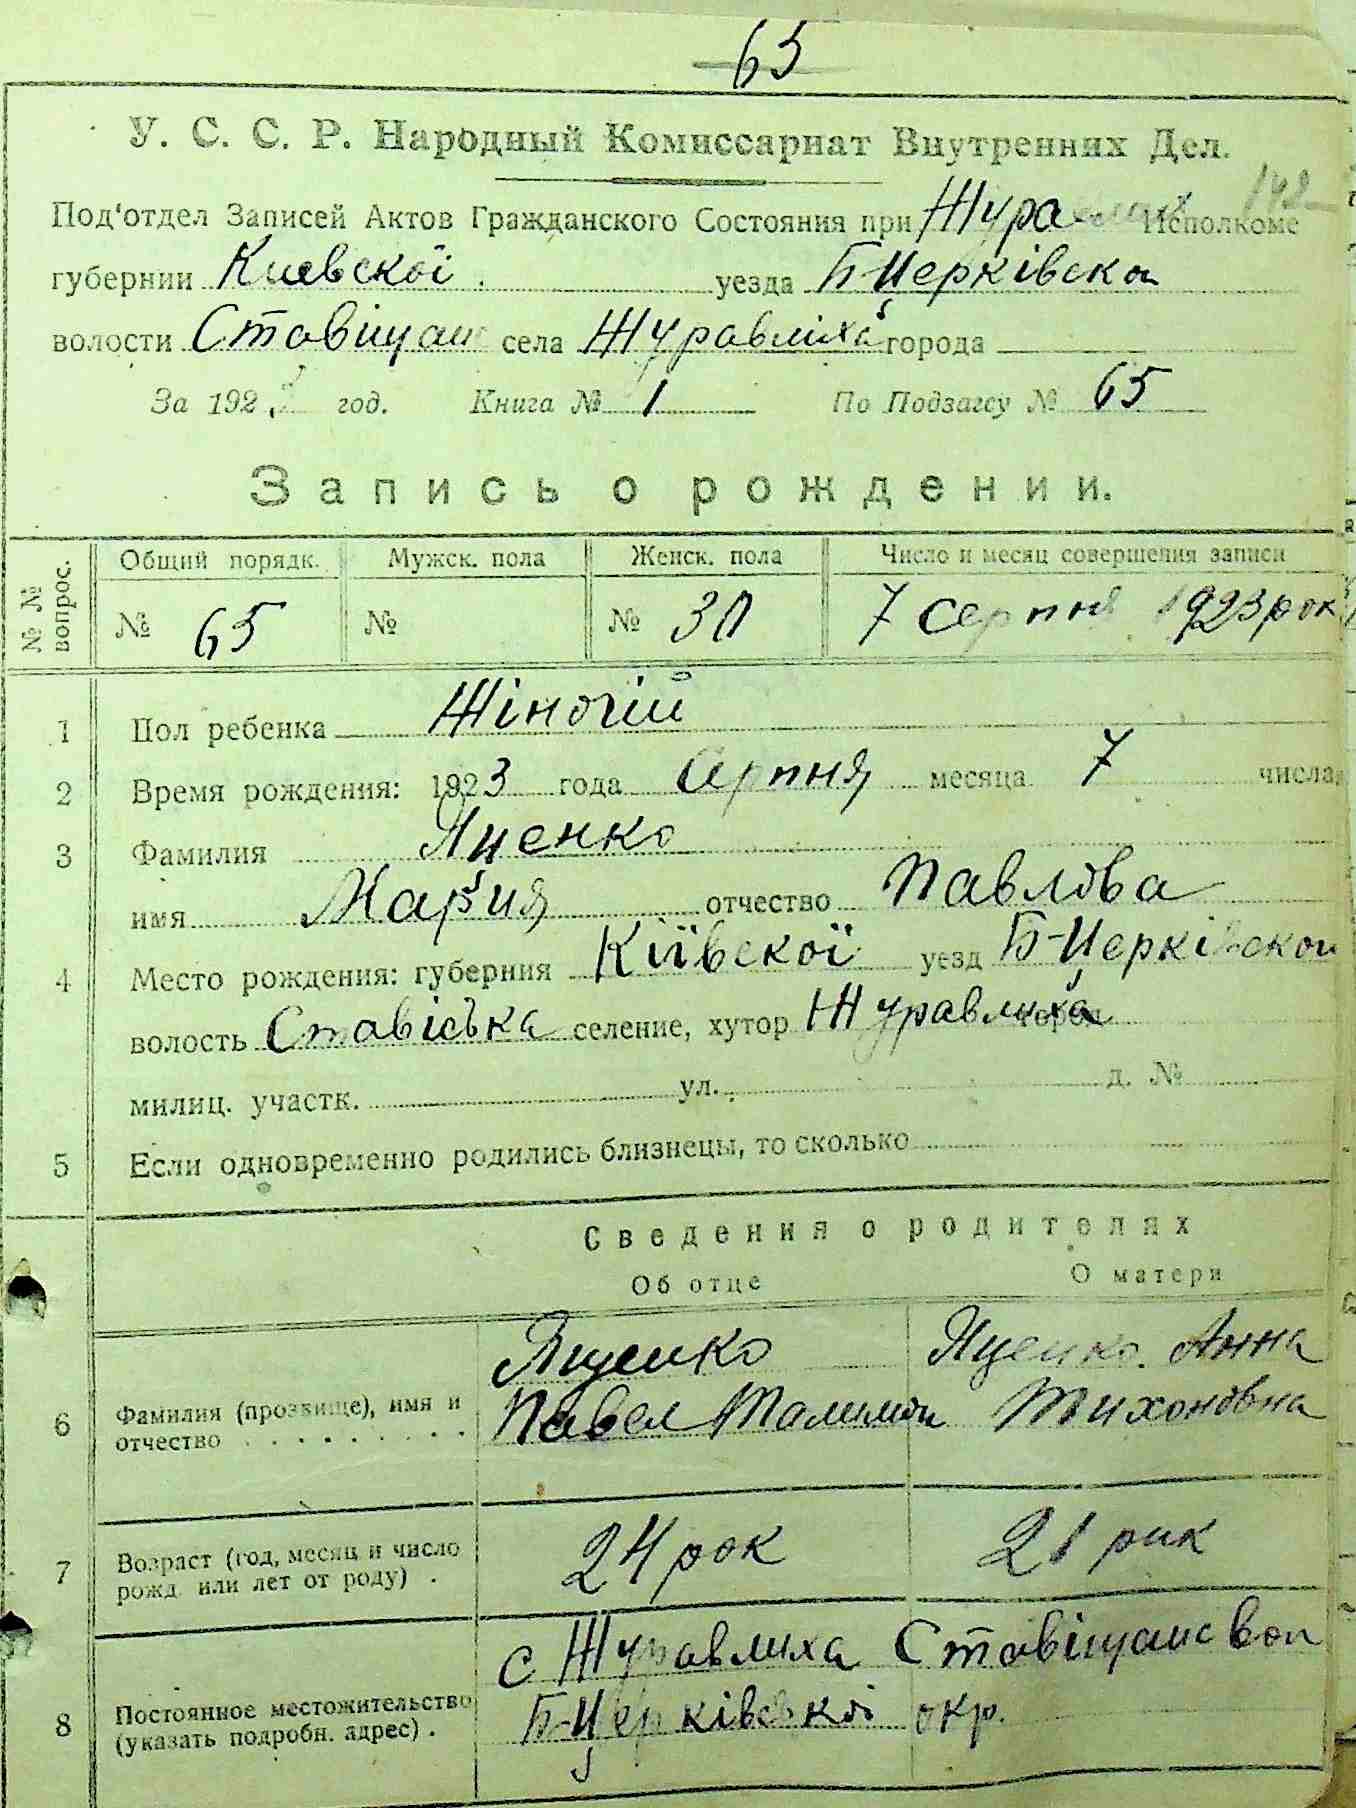 65
У. С. С. Р. Народный Комиссариат Внутренних Дел.
142
Под'отдел Записей Актов Гражданского Состояния при Исполкоме
губернии Киевскої уезда Б-Церківскои
волости села Журавлиха города
За 192 год. Книга № 1 По Подзагсу № 65
Запись о рождении.
№ № вопрос. Общий порядк. Мужск. пола Женск. пола Число и месяц совершения записи
№ 65 № № 30 7 серпня 1923 рок
1 Пол ребенка Жіночій
2 Время рождения: 1923 года Серпня месяца 7 числа
3 Фамилия Яценко
имя Мария отчество Павлова
4 Место рождения: губерния Кіївскої уезд Б-Церківскои
волость Ставіська селение, хутор Журавлиха город
милиц. участк. ул. д. №
5 Если одновременно родились близнецы, то сколько
Сведения о родителях
Об отце О матери
6 Фамилия (прозвище), имя и отчество Яценко Яценко. Анна
Павел Тихоновна
7 Возраст (год, месяц и число рожд. или лет от роду) . 24 рок 21 рик
8 Постоянное местожительство (указать подробн. адрес) . с Журавлиха Ставіщанс вол
Б-Церківскої окр.